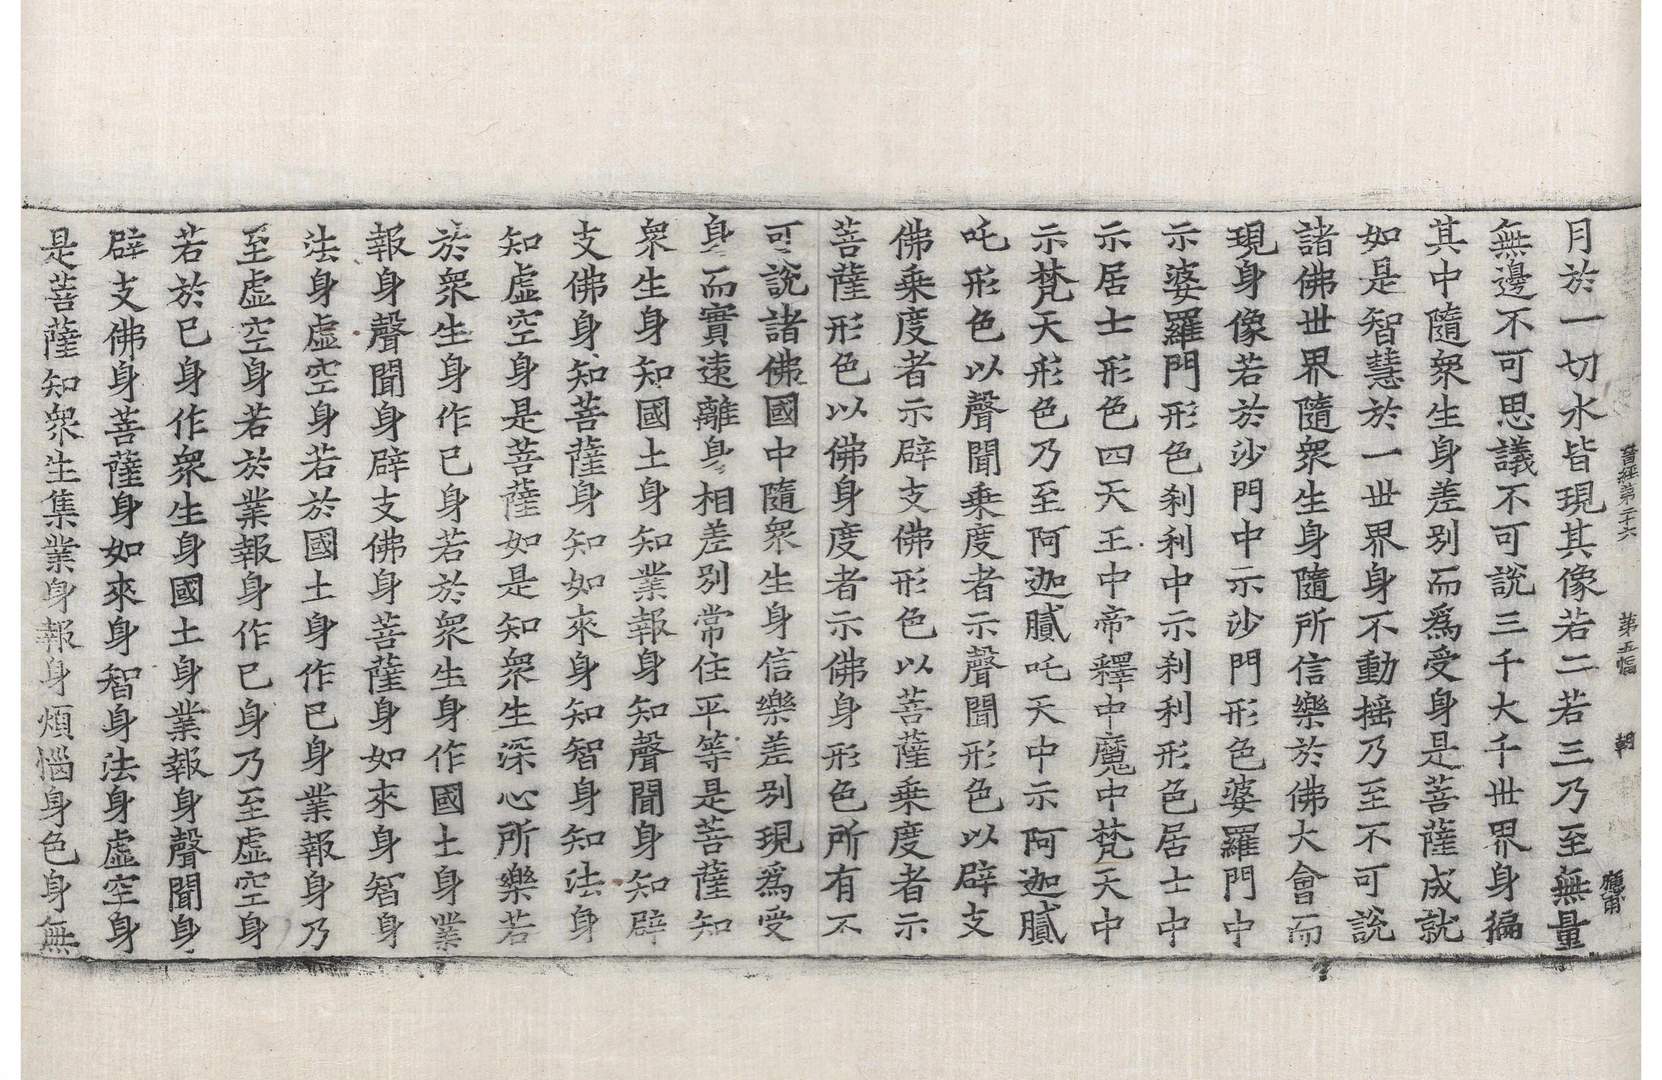 晉經第二十六 第五幅 朝
月於一切水皆現其像若二若三乃至無量
無邊不可思議不可說三千大千世界身徧
其中隨衆生身差別而爲受身是菩薩成就
如是智慧於一世界身不動搖乃至不可說
諸佛世界隨衆生身隨所信樂於佛大會而
現身像若於沙門中示沙門形色婆羅門中
示婆羅門形色刹利中示刹利形色居士中
示居士形色四天王中帝釋中魔中梵天中
示梵天形色乃至阿迦膩吒天中示阿迦膩
吒形色以聲聞乗度者示聲聞形色以辟支
佛乗度者示辟支佛形色以菩薩乗度者示
菩薩形色以佛身度者示佛身形色所有不
可說諸佛國中隨衆生身信樂差別現爲受
身而實遠離身相差別常住平等是菩薩知
衆生身知國土身知業報身知聲聞身知辟
支佛身知菩薩身知如來身知智身知法身
知虛空身是菩薩如是知衆生深心所樂若
於衆生身作己身若於衆生身作國土身業
報身聲聞身辟支佛身菩薩身如來身智身
法身虛空身若於國土身作己身業報身乃
至虛空身若於業報身作己身乃至虛空身
若於己身作衆生身國土身業報身聲聞身
辟支佛身菩薩身如來身智身法身虛空身
是菩薩知衆生集業身報身煩惱身色身無